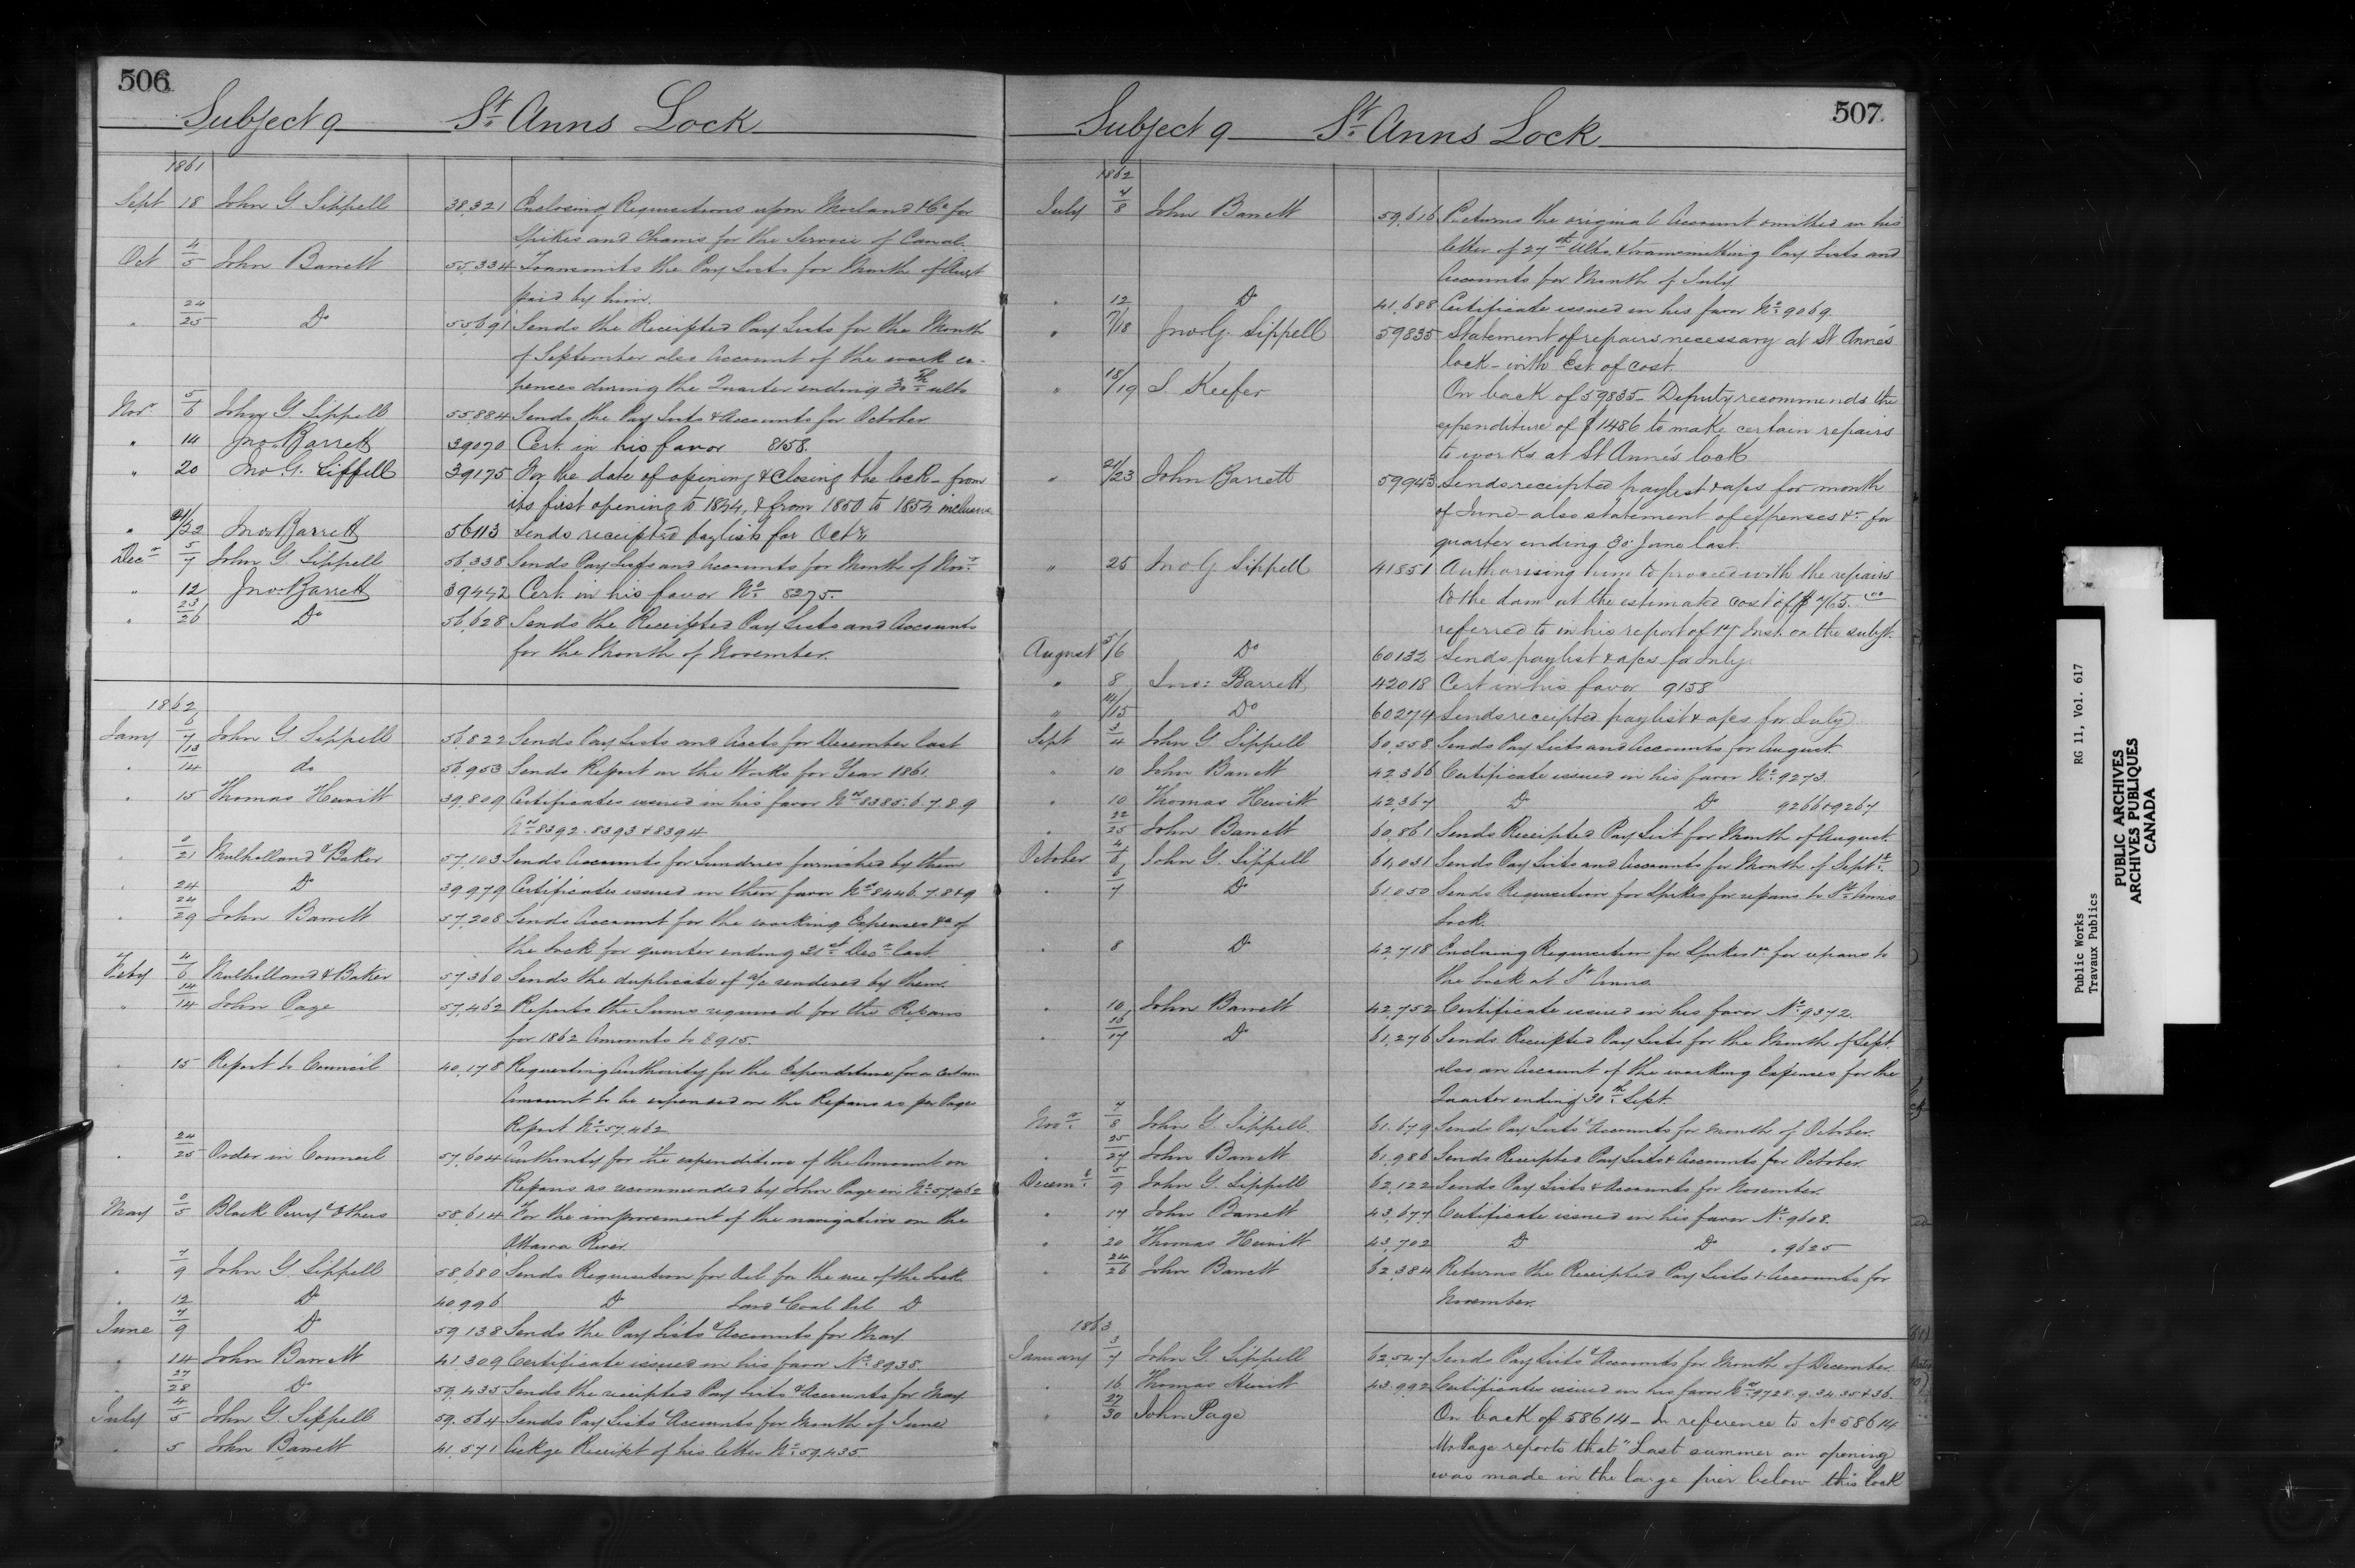 506
Subject 9 St. Anns Lock
1861
Sept 18 John G. Sippell 38,321 Enclosing Requisitions upon Morland & Co for
Spikes and Chains for the Service of Canal.
Oct 4/5 John Barrett 55,334 Transmits the Pay Lists for Month of Augt
paid by him.
" 24/25 Do 55,691 Sends the Receipted Pay Lists for the Month
of September also Account of the work ex-
pences during the Quarter ending 30th ulto
Novr 5/6 John G. Sippell 55,884 Sends the Pay Lists & Accounts for October
" 14 Jno. Barrett 39070 Cert. in his favor 8158.
" 20 Jno. G. Sippell 39175 For the date of opening & closing the lock - from
its first opening to 1844, & from 1850 to 1854 inclusive
" 21/22 Jno. Barrett 56113 Sends receipted paylists for Octr.
Decr 5/7 John G. Sippell 56,338 Sends Pay Lists and Accounts for Month of Novr.
" 12 Jno. Barrett 39442 Cert. in his favor No. 8275.
" 23/26 Do 56,628 Sends the Receipted Pay Lists and Accounts
for the Month of November.
1862
Jany 6/7 John G. Sippell 56,822 Sends Pay Lists and Accts for December last
" 13/14 do 56,953 Sends Report on the Works for Year 1861.
" 15 Thomas Hewitt 39,809 Certificates issued in his favor Nos 8385.6.7.8.9
Nos 8392.8393 & 8394
" 0/21 Mulholland & Baker 57,103 Sends Accounts for Sundries furnished by them
" 24 Do 39979 Certificates issued in their favor Nos 8446.7.8 & 9
" 24/29 John Barrett 57,208 Sends Account for the working Expenses &c of
the Lock for quarter ending 31st Decr last
Feby 4/6 Mulholland & Baker 57,360 Sends the duplicate of a/c rendered by them.
" 14/14 John Page 57,462 Reports the Sums required for the Repairs
for 1862 Amounts to $915.
" 15 Report to Council 40,178 Requesting Authority for the Expenditure for a certain
Amount to be expended on the Repairs as per Pages
Report No. 57,462
" 24/25 Order in Council 57,604 Authority for the expenditure of the Amount on
Repairs as recommended by John Page in No. 57,462
May 0/5 Black Perry & others 58,614 For the improvement of the navigation on the
Ottawa River.
" 7/9 John G. Sippell 58,680 Sends Requisition for Oil for the use of the Lock
" 12 Do 40,996 Do Lard & Coal Oil Do
June 7/9 Do 59,138 Sends the Pay Lists & Accounts for May
" 14 John Barrett 41,309 Certificate issued in his favor No. 8935.
" 27/28 Do 59,435 Sends the receipted Pay Lists & Accounts for May
July 4/5 John G. Sippell 59,564 Sends Pay Lists & Accounts for Month of June
" 5 John Barrett 41,571 Ackge Receipt of his letter No. 59,435
507
Subject 9 St. Anns Lock
1862
July 7/8 John Barrett 59,616 Returns the original Account omitted in his
letter of 27th Ulto, & transmitting Pay Lists and
Accounts for Month of July
" 12 Do 41,688 Certificate issued in his favor No. 9069.
" 17/18 Jno. G. Sippell 59835 Statement of repairs necessary at St Anne's
lock - with Est of cost.
" 18/19 S. Keefer On back of 59835 - Deputy recommends the
expenditure of $1486 to make certain repairs
to works at St Anne's lock
" 21/23 John Barrett 59943 Sends receipted paylist & a/cs for month
of June - also statement of expenses &c for
quarter ending 30 June last.
" 25 Jno G Sippell 41851 Authorising him to proceed with the repairs
to the dam at the estimated cost of $765.00
referred to in his report of 17 Inst. on the subjt.
August 5/6 Do 60132 Sends paylist & a/cs for July
" 8 Jno: Barrett 42018 Cert in his favor 9158
" 14/15 Do 60274 Sends receipted paylist & a/cs for July
Sept 3/4 John G. Sippell 60,558 Sends Pay Lists and Accounts for August.
" 10 John Barrett 42,366 Certificate issued in his favor No. 9273.
" 10 Thomas Hewitt 42,367 Do Do 9266 & 9267
" 22/25 John Barrett 60,861 Sends Receipted Pay List for Month of August.
October 4/6 John G. Sippell 61,031 Sends Pay Lists and Accounts for Month of Septr.
" 6/7 Do 61,050 Sends Requisition for Spikes for repairs to St. Anns
Lock.
" 8 Do 42,718 Enclosing Requisition for Spikes &c for repairs to
the Lock at St Anns.
" 10 John Barrett 42,752 Certificate issued in his favor No. 9372.
" 15/17 Do 61,276 Sends Receipted Pay Lists for the Month of Sept.
also an Account of the working Expenses for the
Quarter ending 30th Sept.
Novr. 7/8 John G. Sippell. 61,679 Sends Pay Lists & Accounts for Month of October.
" 25/27 John Barrett 61,986 Sends Receipted Pay Lists & Accounts for October.
Decemr. 5/9 John G. Sippell 62,122 Sends Pay Lists & Accounts for November.
" 17 John Barrett 43,677 Certificate issued in his favor No. 9608.
" 20 Thomas Hewitt 43,702 Do Do " 9625
" 24/26 John Barrett 62,384 Returns the Receipted Pay Lists & Accounts for
November.
1863
January 3/7 John G. Sippell 62,547 Sends Pay Lists & Accounts for Month of December.
" 16 Thomas Hewitt 43,992 Certificates issued in his favor Nos 9728.9.34.35 & 36.
" 27/30 John Page On back of 58614 - In reference to No 58614
Mr Page reports that "Last summer an opening
was made in the large pier below this lock
Public Works RG 11, Vol. 617
Travaux Publics
PUBLIC ARCHIVES
ARCHIVES PUBLIQUES
CANADA